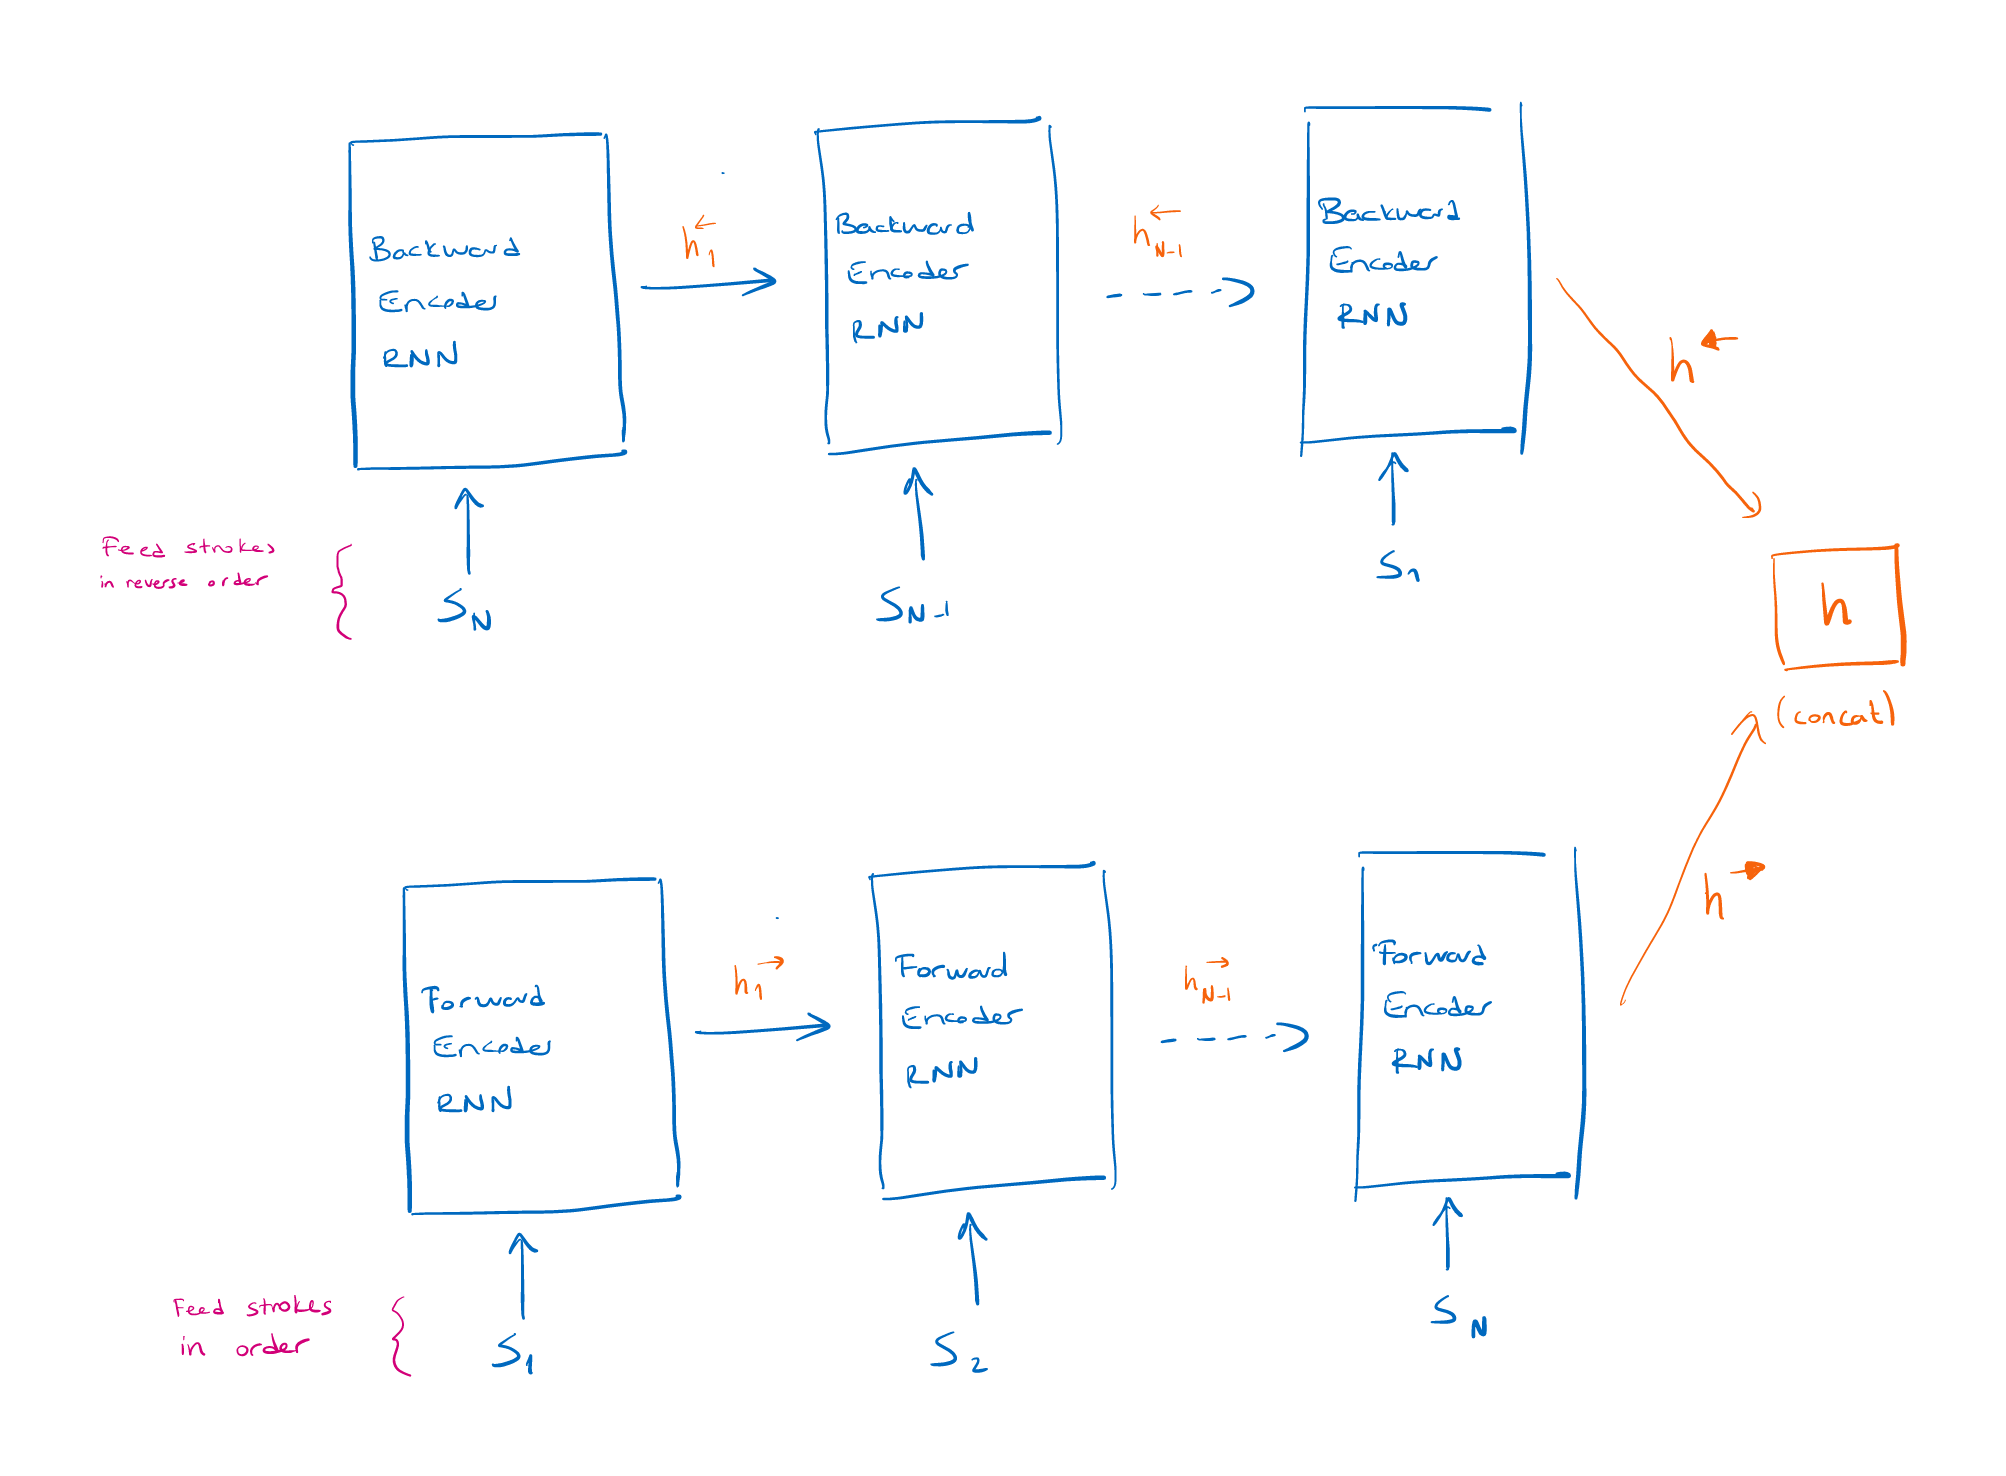 Backward
Encoder
RNN
h1←
Backward
Encoder
RNN
hN-1←
Backward
Encoder
RNN
h←
Feed strokes
in reverse order
SN
SN-1
S1
h
(concat)
Forward
Encoder
RNN
h1→
Forward
Encoder
RNN
hN-1→
Forward
Encoder
RNN
h→
Feed strokes
in order
S1
S2
SN